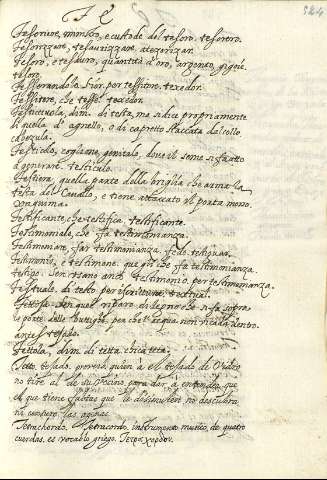 T E
524
Tesoriere, ministro, e custode del tesoro. tesorero.
Tesorizzare, tesaurizzare, atezorizar.
Tesoro, e tesauro, quantità d'oro, argento, gioie.
tesoro.
Tessitore, che tesse. texedor.
Testicciuola, dim. di testa, ma si dice propriamente
di quella d'agnello, o di capretto staccata dal collo.
cabezuela.
Testicolo, coglione, genitale, dove il seme si fa atto
a generare. testiculo.
Testiera, quella parte della briglia che arma la
testa del Cavallo, e tiene attaccato il porta morso.
Testificante, che testifica. testificante.
Testimoniale, che fa testimonianza.
Testimoniare, far testimonianza, fede. testiguar.
Testimonio, e testimone. que gli che fa testimonianza.
testigo. Servesi anco testimonio, per testimonianza.
Testuale, di testo per iscrittura. textual.
le porte delle botteghe, perche l'acqua non cada dentro.
Tettola, dim. di tetta. chica teta.
Tetto, tejado. proverb. quien à el tejado de vidrio
no tire al de su vecino, para dar à entender que
el que tiene faltas que le disimulen no descubra
Tetrachordo. Tetracordo, instrumento musico, de quatro
cuerdas. es vocablo griego. Τετράχορδον.